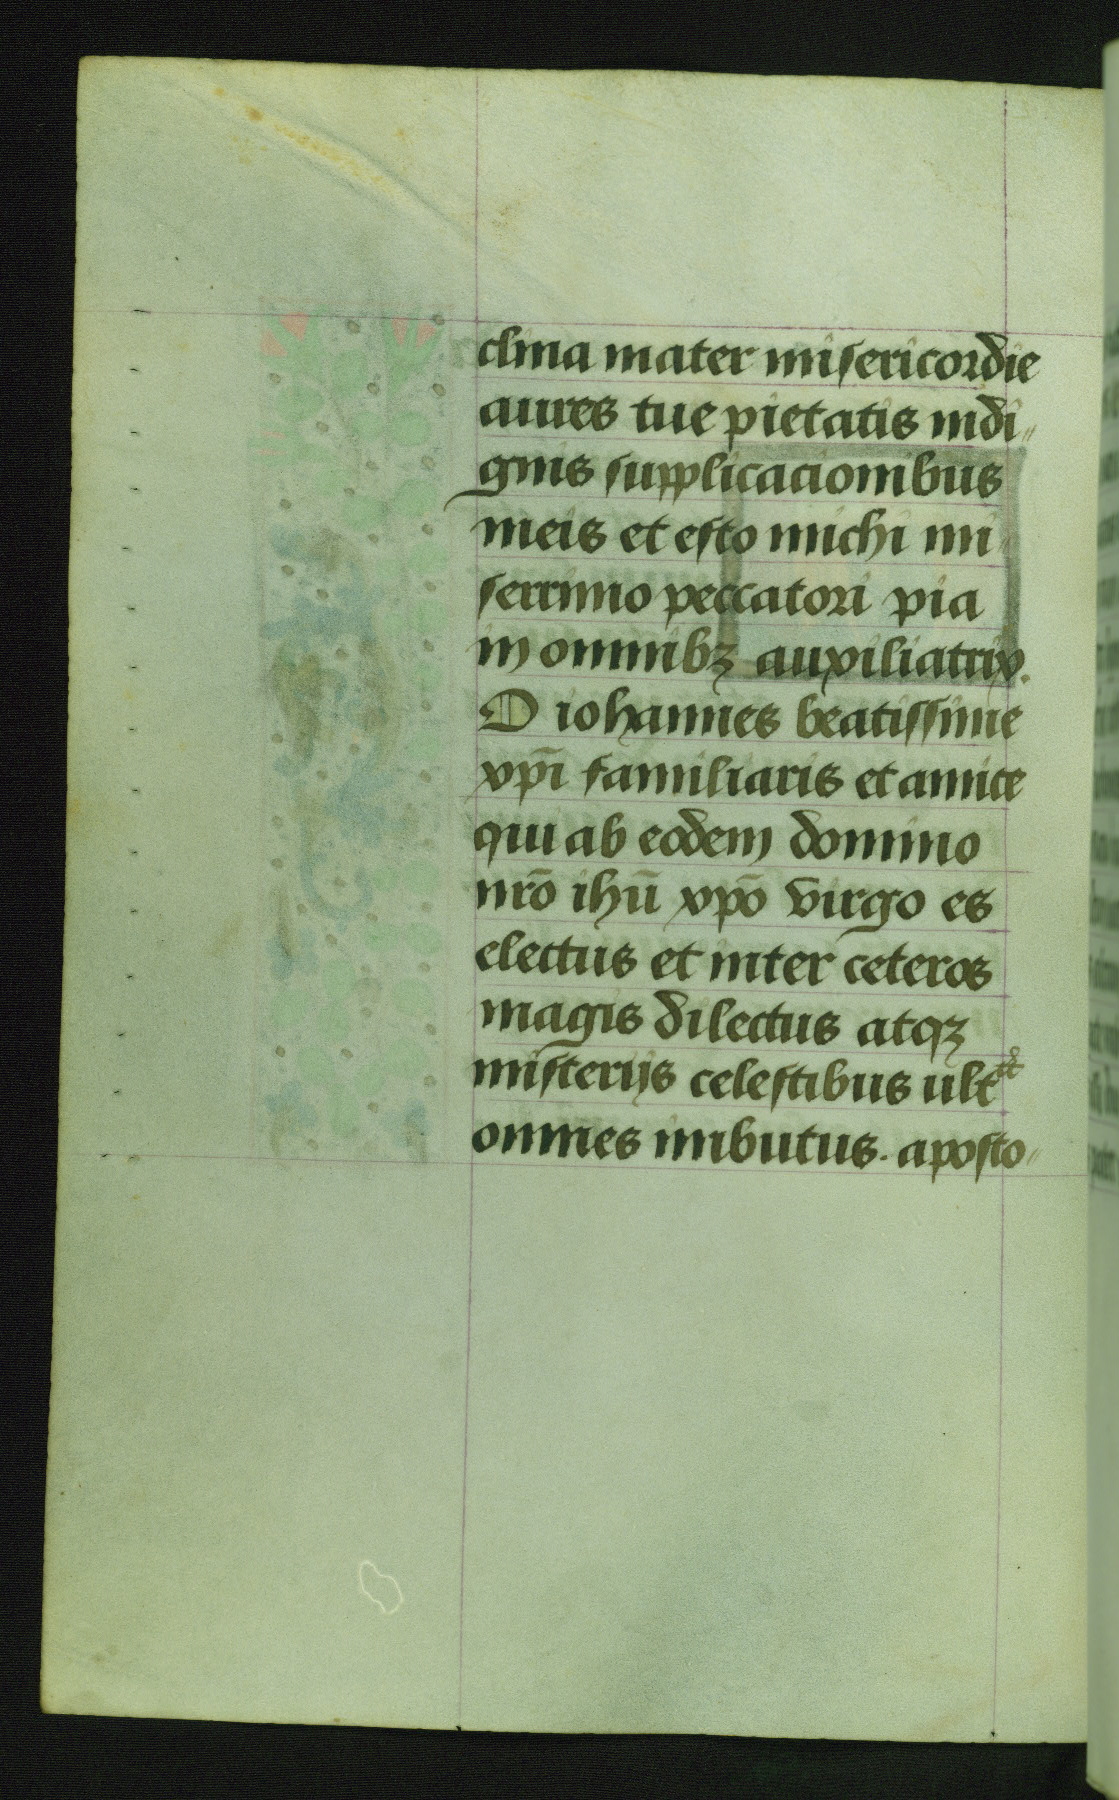 clina mater misericordie
aures tue pietatis indi„
gnis supplicacionibus
meis et esto michi mi„
serrimo peccatori pia
in omnibꝫ auxiliatrix.
O iohannes beatissime
xpī familiaris et amice
qui ab eodem domino
nrō ihū xpō virgo es
electus et inter ceteros
magis dilectus atqꝫ
misterijs celestibus ult
omnes imbutus. aposto„